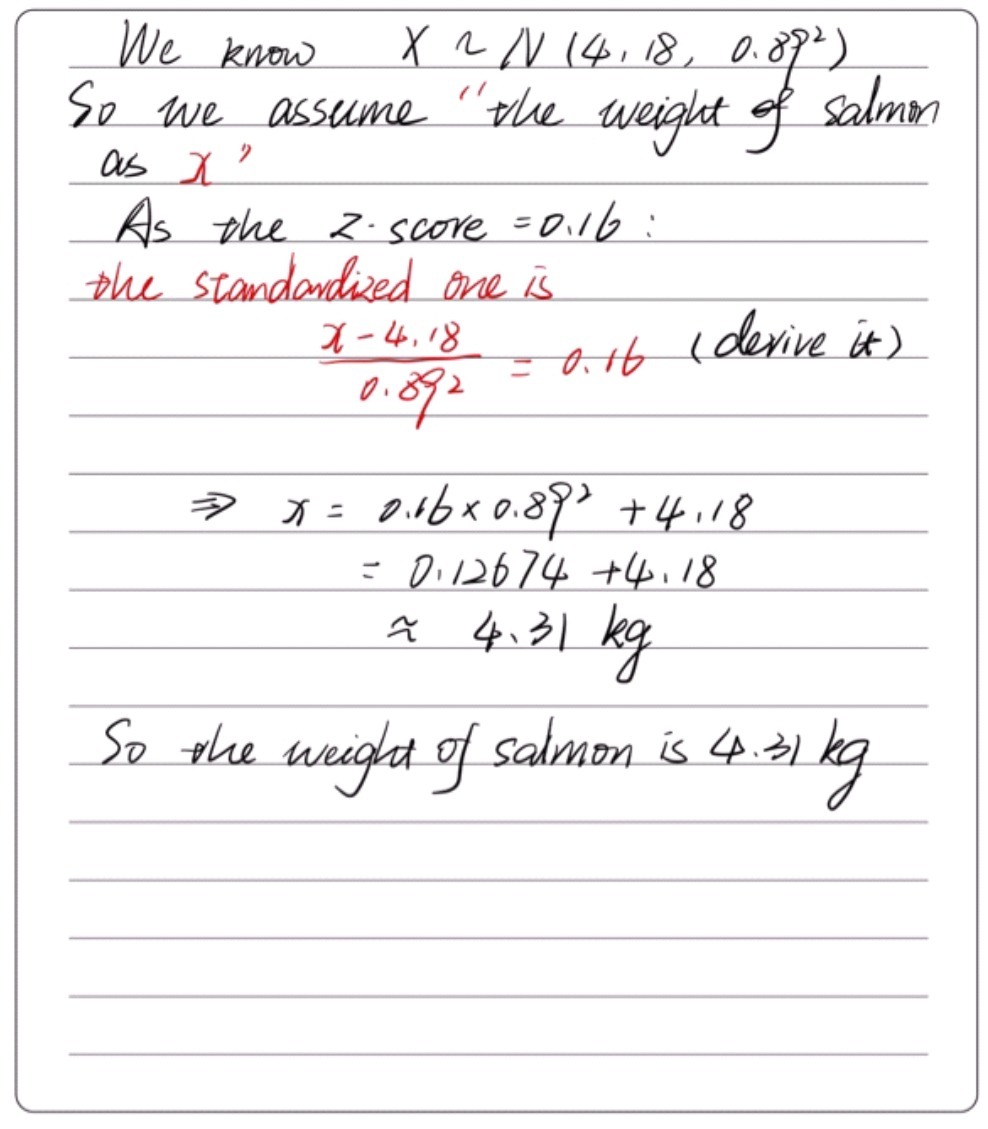 We know X ~ N (4.18, 0.89²)
So we assume "the weight of salmon
as x"
As the z-score = 0.16 :
the standardized one is
x - 4.18 / 0.89² = 0.16 (derive it)
⇒ x = 0.16 × 0.89² + 4.18
= 0.12674 + 4.18
≈ 4.31 kg
So the weight of salmon is 4.31 kg